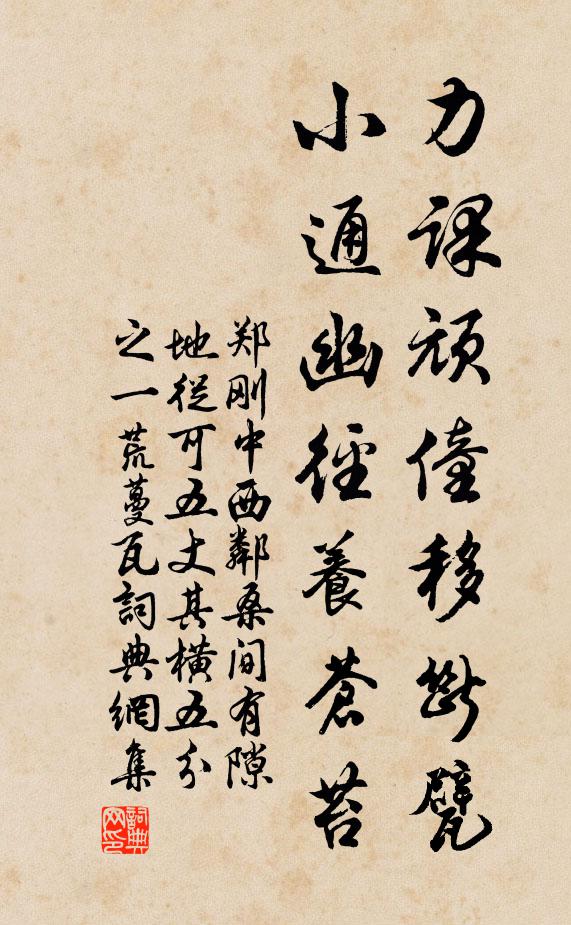 力课顽僮移断甓
小通幽径養蒼苔
郑刚中西鄰桑间有隙
地從可五丈其橫五分
之一荒蔓瓦詞典網集
詞典
网印